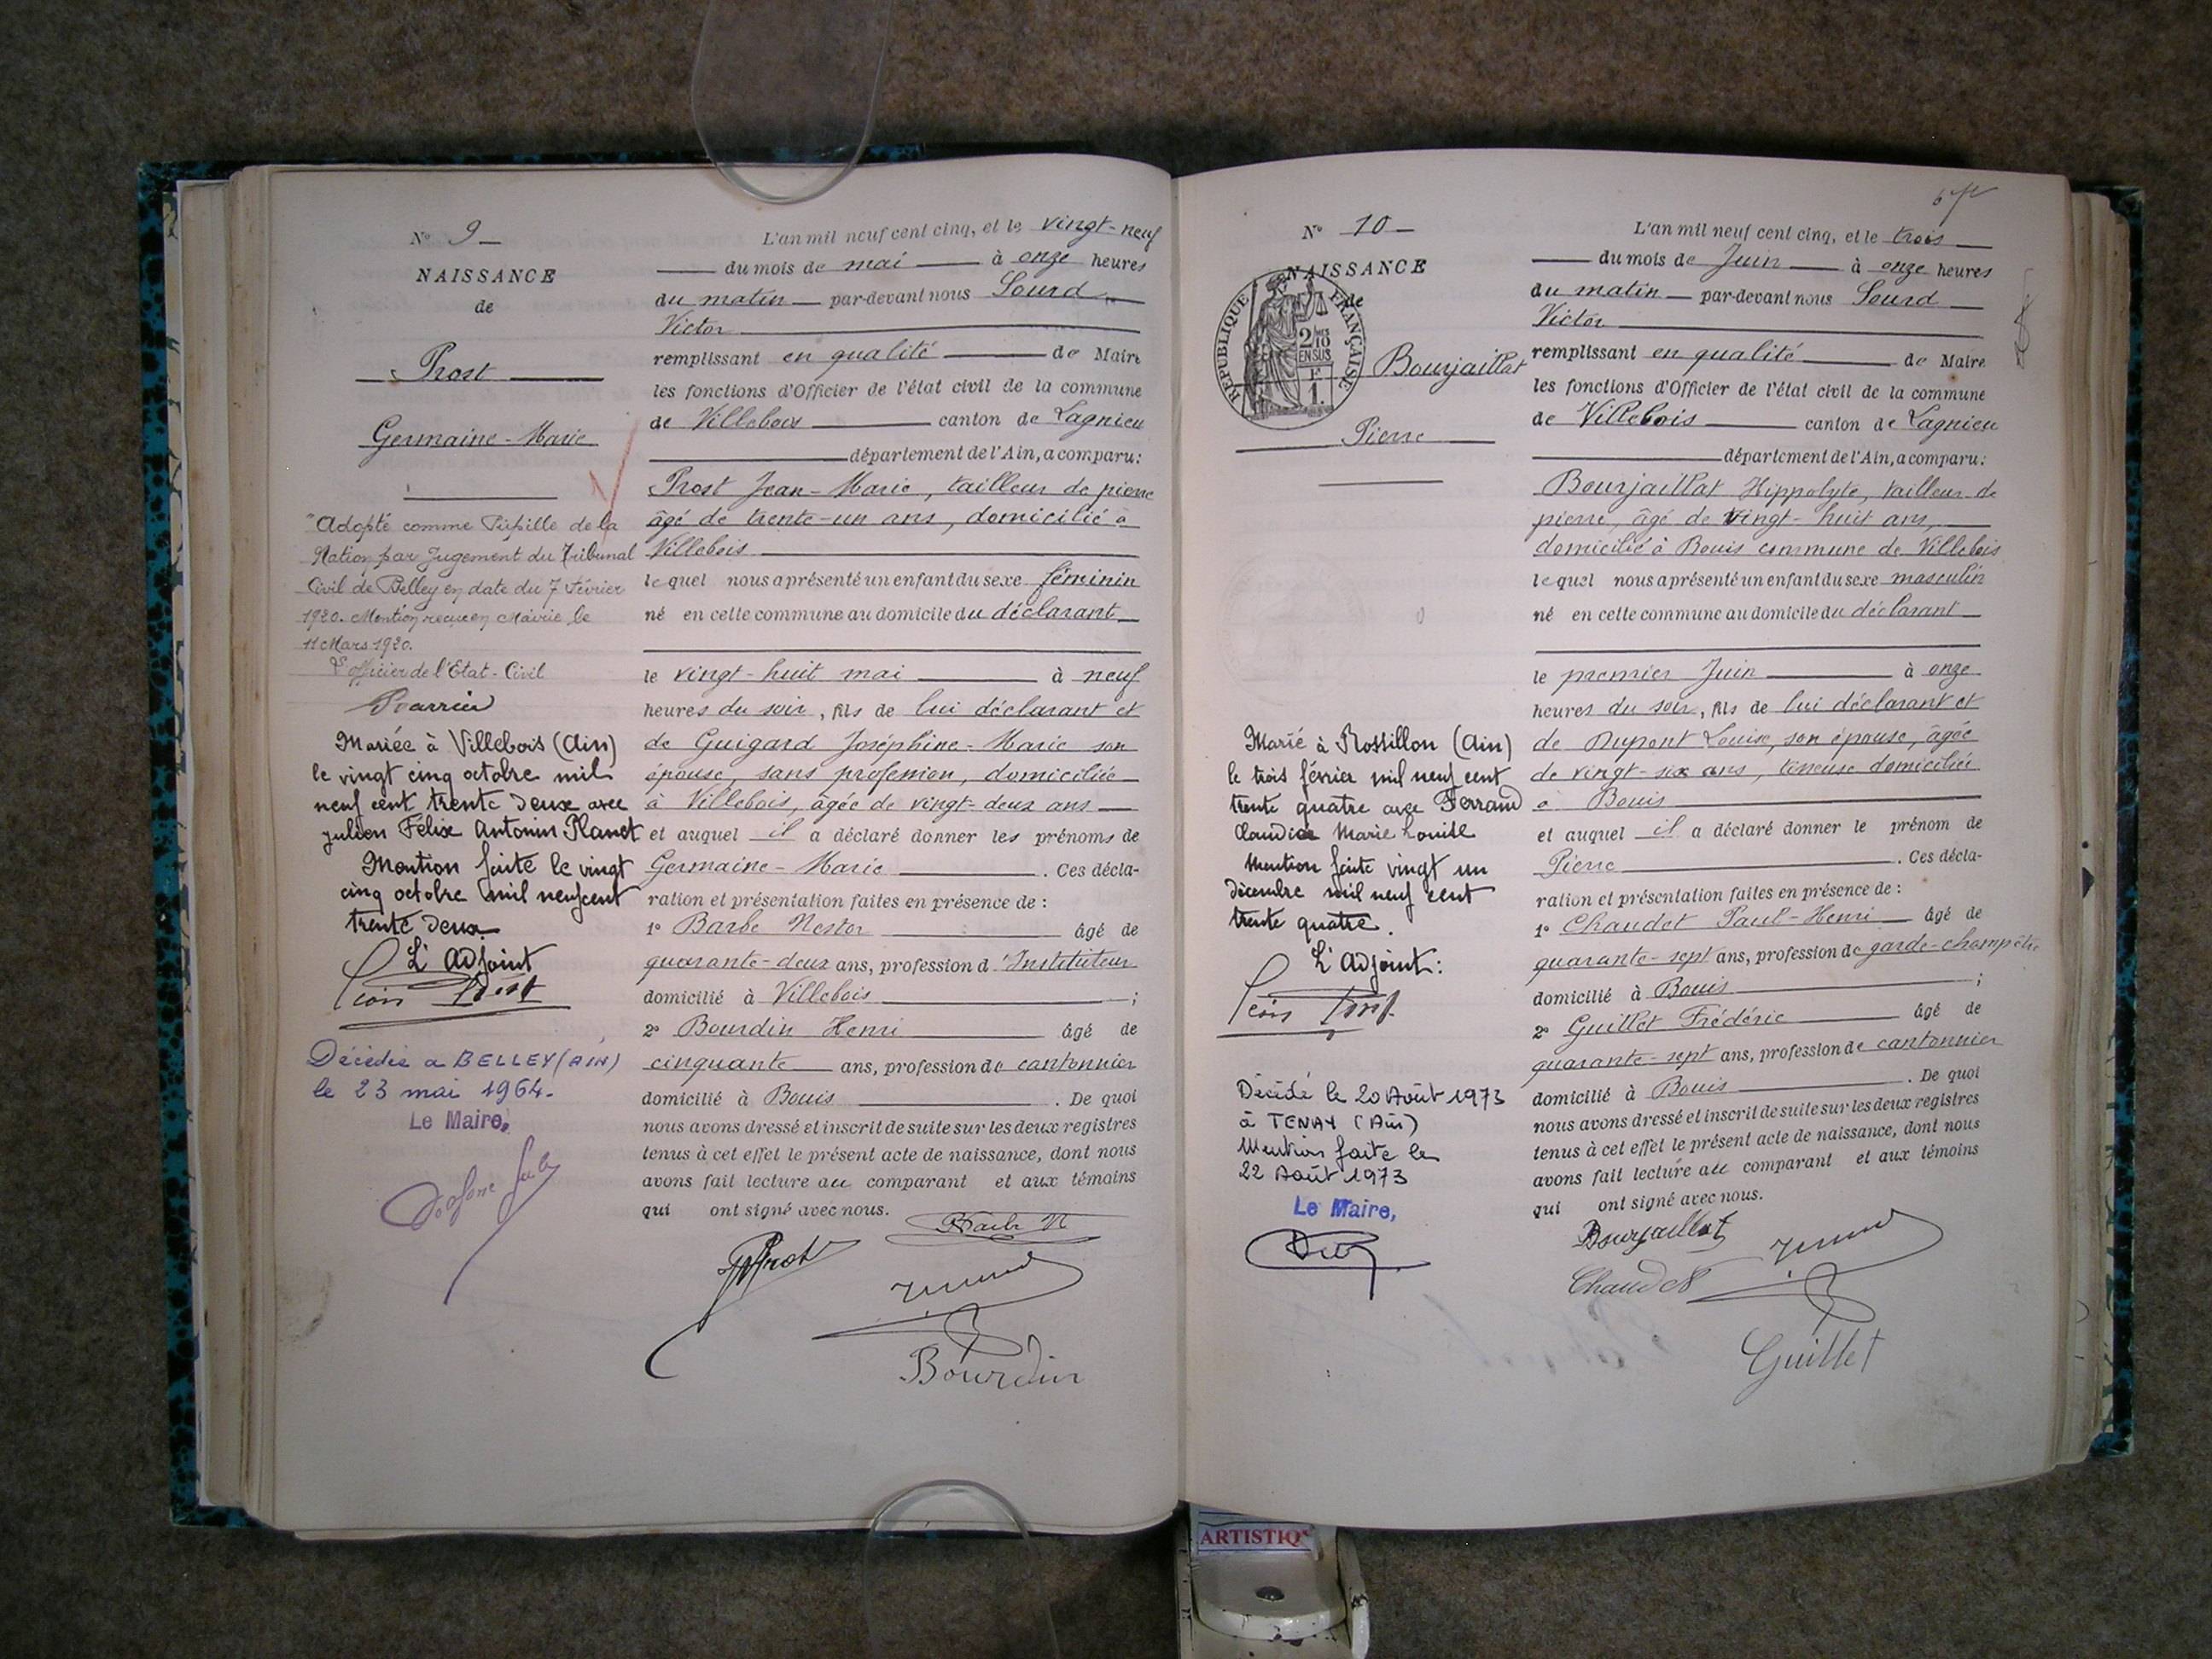 N° 9
NAISSANCE
de
Prost
Germaine-Marie
"Adopté comme Pupille de la
Nation par Jugement du Tribunal
Civil de Belley en date du 7 Février
1920. Mention reçue en Mairie le
11 Mars 1920.
L'officier de l'Etat-Civil
Mariée à Villebois (Ain)
le vingt cinq octobre mil
neuf cent trente deux avec
Julien Félix Antonin Planet
Mention faite le vingt
cinq octobre mil neuf cent
trente deux
L'Adjoint
Décédée a BELLEY (AIN)
le 23 mai 1964.
Le Maire,
L'an mil neuf cent cinq, et le vingt-neuf
du mois de mai à onze heures
du matin par-devant nous Sourd
Victor
remplissant en qualité de Maire
les fonctions d'Officier de l'état civil de la commune
de Villebois canton de Lagnieu
département de l'Ain, a comparu:
Prost Jean-Marie, tailleur de pierre
âgé de trente-un ans, domicilié à
Villebois
lequel nous a présenté un enfant du sexe féminin
né en cette commune au domicile du déclarant
le vingt-huit mai à neuf
heures du soir, fils de lui déclarant et
de Guigard Joséphine-Marie son
épouse, sans profession, domiciliée
à Villebois, âgée de vingt-deux ans
et auquel il a déclaré donner les prénoms de
Germaine-Marie. Ces décla-
ration et présentation faites en présence de :
1° Barbe Nestor âgé de
quarante-deux ans, profession d'Instituteur
domicilié à Villebois ;
2° Bourdin Henri âgé de
cinquante ans, profession de cantonnier
domicilié à Bouis. De quoi
nous avons dressé et inscrit de suite sur les deux registres
tenus à cet effet le présent acte de naissance, dont nous
avons fait lecture au comparant et aux témoins
qui ont signé avec nous.
Bourdin
N° 10
NAISSANCE
de
REPUBLIQUE FRANÇAISE
2/10 EN SUS
F
1.
Bourjaillat
Pierre
Marié à Rossillon (Ain)
le trois février mil neuf cent
trente quatre avec Ferrand
Claudia Marie Louise
Mention faite vingt un
décembre mil neuf cent
trente quatre.
L'Adjoint:
Décédé le 20 Août 1973
à TENAY (Ain)
Mention faite le
22 Août 1973
Le Maire,
L'an mil neuf cent cinq, et le trois
du mois de Juin à onze heures
du matin par-devant nous Sourd
Victor
remplissant en qualité de Maire
les fonctions d'Officier de l'état civil de la commune
de Villebois canton de Lagnieu
département de l'Ain, a comparu:
Bourjaillat Hippolyte, tailleur de
pierre, âgé de vingt-huit ans,
domicilié à Bouis commune de Villebois
lequel nous a présenté un enfant du sexe masculin
né en cette commune au domicile du déclarant
le premier Juin à onze
heures du soir, fils de lui déclarant et
de Dupont Louise, son épouse, âgée
de vingt-six ans, tisseuse domiciliée
à Bouis
et auquel il a déclaré donner le prénom de
Pierre. Ces décla-
ration et présentation faites en présence de :
1° Chaudet Paul-Henri âgé de
quarante-sept ans, profession de garde-champêtre
domicilié à Bouis ;
2° Guillet Frédéric âgé de
quarante-sept ans, profession de cantonnier
domicilié à Bouis. De quoi
nous avons dressé et inscrit de suite sur les deux registres
tenus à cet effet le présent acte de naissance, dont nous
avons fait lecture au comparant et aux témoins
qui ont signé avec nous.
Bourjaillat
Chaudet
Guillet
ARTISTIQ